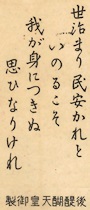 世治まり民安かれと
いのるこそ
我が身につきぬ
思ひなりけれ
後醍醐天皇御製